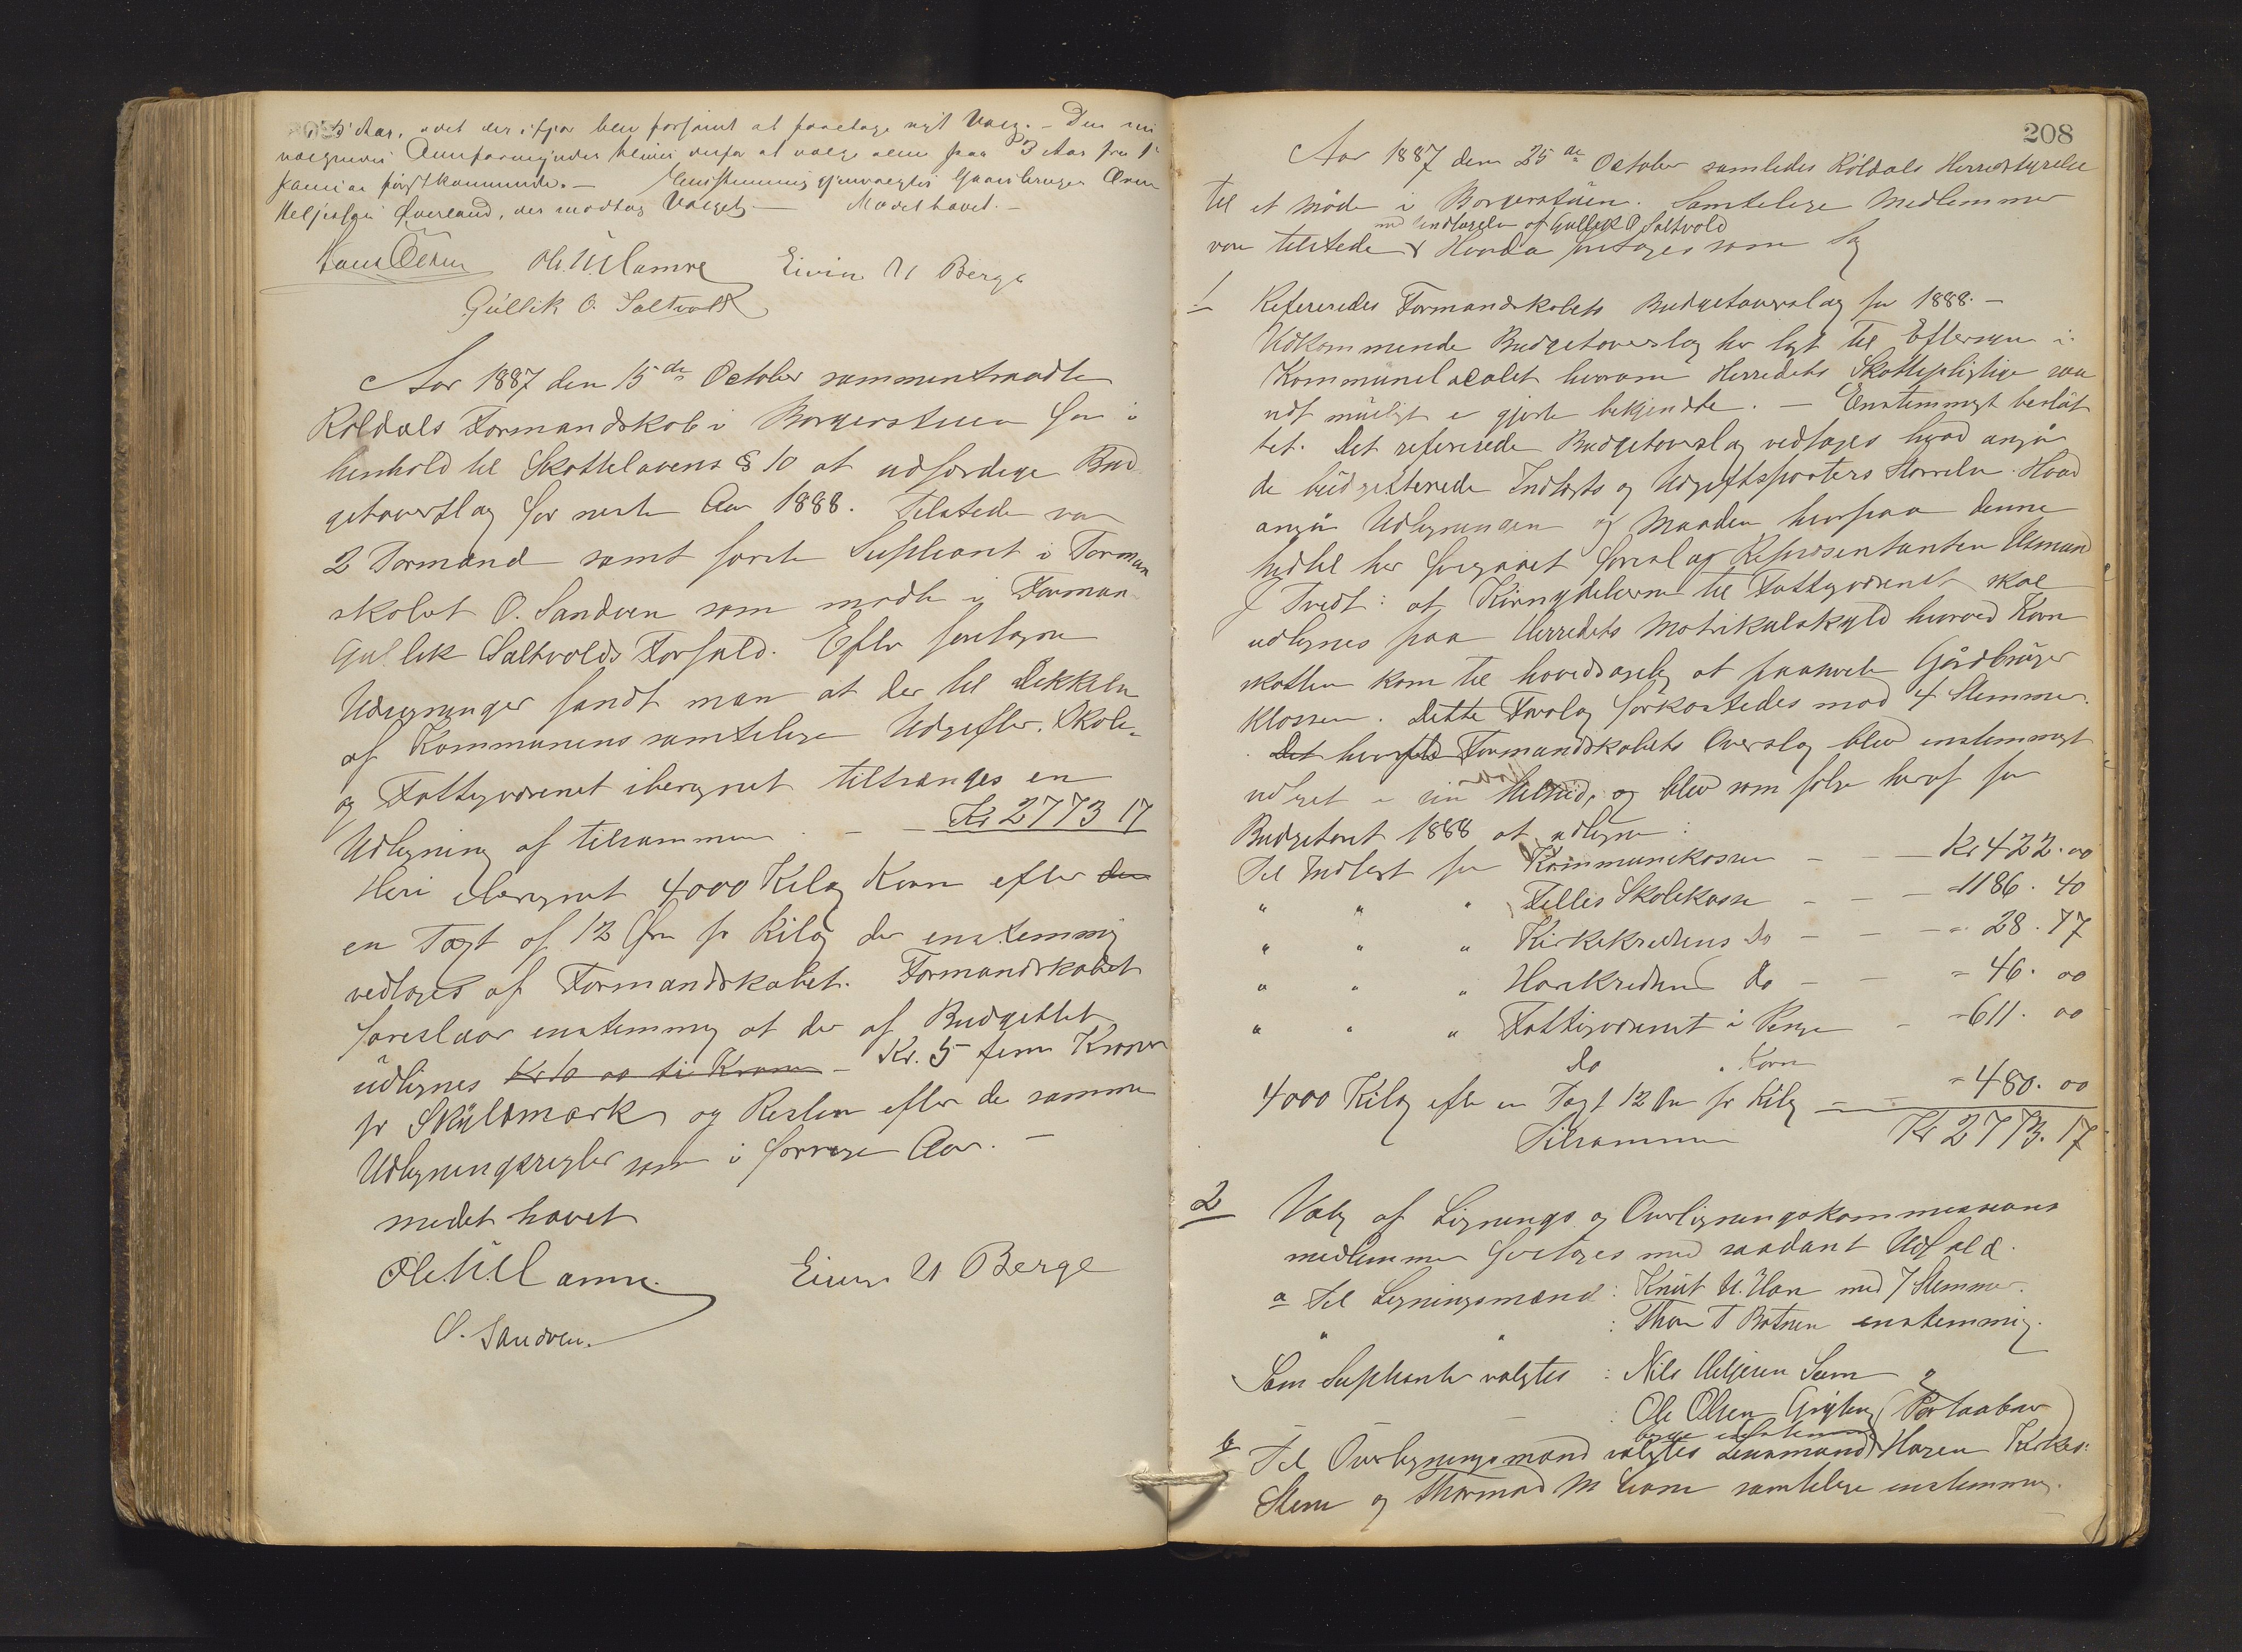 3 Aar, udet der ifjor blev forsømt at foretage nyt Valg. – Den nu
valgendes bliver derfor at vælge alene paa 3 Aar fra 1
Januar førstkommende. – Enstemmig gjenvalgtes Gaardbruger
Helje Øverland, der modtog Valget. – Mødet hævet. –
Ole. N. Hamre Eivin N Berge
Gullik O. Saltvold
Aar 1887 den 15de October sammentraadte
Röldals Formandskab i Borgerstuen for i
henhold til Skattelovens § 10 at udferdige Bud
getoverslag for neste Aar 1888. Tilstede var
2 Formænd samt første Supleant i Forman
skabet O. Sandven som mødte i Forman
Gullik Saltvolds Forfald. Efter foretagne
Udregninger fandt man at der til Dekkelse
af Kommunens samtelige Udgifter, Skole-
og Fattigvæsenet iberegnet tiltrænges en
Udligning af tilsammen – – Kr 2773 17
Heri iberegnet 4000 Kilog Korn efter den
en Taxt af 12 Øre pr Kilog der enstemmig
vedtoges af Formandskabet. Formandskabet
foreslaar enstemmig at der af Budgettet
udlignes Kr 10 00 ti Kroner – Kr. 5 fem Kroner
pr Skyldmark og Resten efter de samme
Udligningsregler som i forrige Aar. –
mødet hævet
Ole N. Hamre. Eivin N Berge
O. Sandven.
208
Aar 1887 den 25de October samledes Röldals Herredstyrelse
til et møde i Borgerstuen. Samtelige Medlemmer
med Undtagelse af Gullik O Saltvold
var tilstede & Hvorda foretoges som Sag
1 Refereredes Formandskabets Budgetoverslag for 1888. –
Vedkommende Budgetoverslag har ligt til Eftersyn i
Kommunelocalet hvorom Herredets Skattepligtige saa
vidt muligt er gjorte bekjendte. – Enstemmigt beslut
tet. Det refererede Budgetoverslag vedtoges hvad angår
de büdgetterede Indtægts og Udgiftsposters Størrelse. Hvad
angår Udligningen og Maaden hvorpaa denne
hidtil har foregaaet foreslog Repræsentanten Asmund
J Tvedt: at Kornydelserne til Fattigvæsenet skal
udlignes paa Herredets Matrikulskyld hvorved Korn
skatten kom til hovedsagelig at paahvile Gårdbruger
klassen. Dette Forslag forkastedes mod 4 Stemmer.
Det Formandskabets Overslag blev enstemmigt
vedtaget i sin Helhed, og blev som følge heraf for
Budgetaaret 1888 at udligne:
Til Indtægt for Kommunekassen – – Kr 422.00
" " " Felles Skolekasse – – – 1186. 40
" " " Kirkekredsens Do – – – 28. 77
" " " Harekredsens Do – – = 46. 00
" " " Fattigvæsenet i Penge – = 611. 00
Do " Korn
4000 Kilog efter en Taxt 12 Øre pr Kilog – = 480. 00
Tilsammen Kr 2773. 17
2 Valg af Lignings og Overligningskommissions
medlemmer foretoges med saadant Udfald.
a Til Ligningsmænd: Knut N. Hare med 7 Stemmer.
" " : Thor T Botnen enstemmig.
Som Suplanter valgtes: Nils Heljesen Seim
: Ole Olsen
begge enstemmig
b Til Overligningsmænd valgtes Lensmand Haren Kirkes:
Steine og Thormod M samtelige enstemmig.